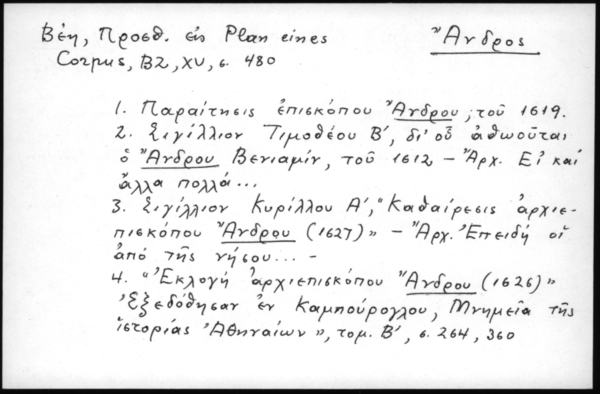 Βέη, Προσθ. εἰς Plan eines
Corpus, BZ, XV, σ. 480
Ἄνδρος
1. Παραίτησις ἐπισκόπου Ἄνδρου, τοῦ 1619.
2. Σιγίλλιον Τιμοθέου Β', δι' οὗ ἀθωοῦται
ὁ Ἄνδρου Βενιαμίν, τοῦ 1612 – Ἀρχ. Εἰ καί
ἄλλα πολλά...
3. Σιγίλλιον Κυρίλλου Α', "Καθαίρεσις ἀρχιε-
πισκόπου Ἄνδρου (1627)» – Ἀρχ. Ἐπειδή οἱ
ἀπό τῆς νήσου... –
4. "Ἐκλογή ἀρχιεπισκόπου Ἄνδρου (1626)»
Ἐξεδόθησαν ἐν Καμπούρογλου, Μνημεῖα τῆς
ἱστορίας Ἀθηναίων», τομ. Β', σ. 264, 360